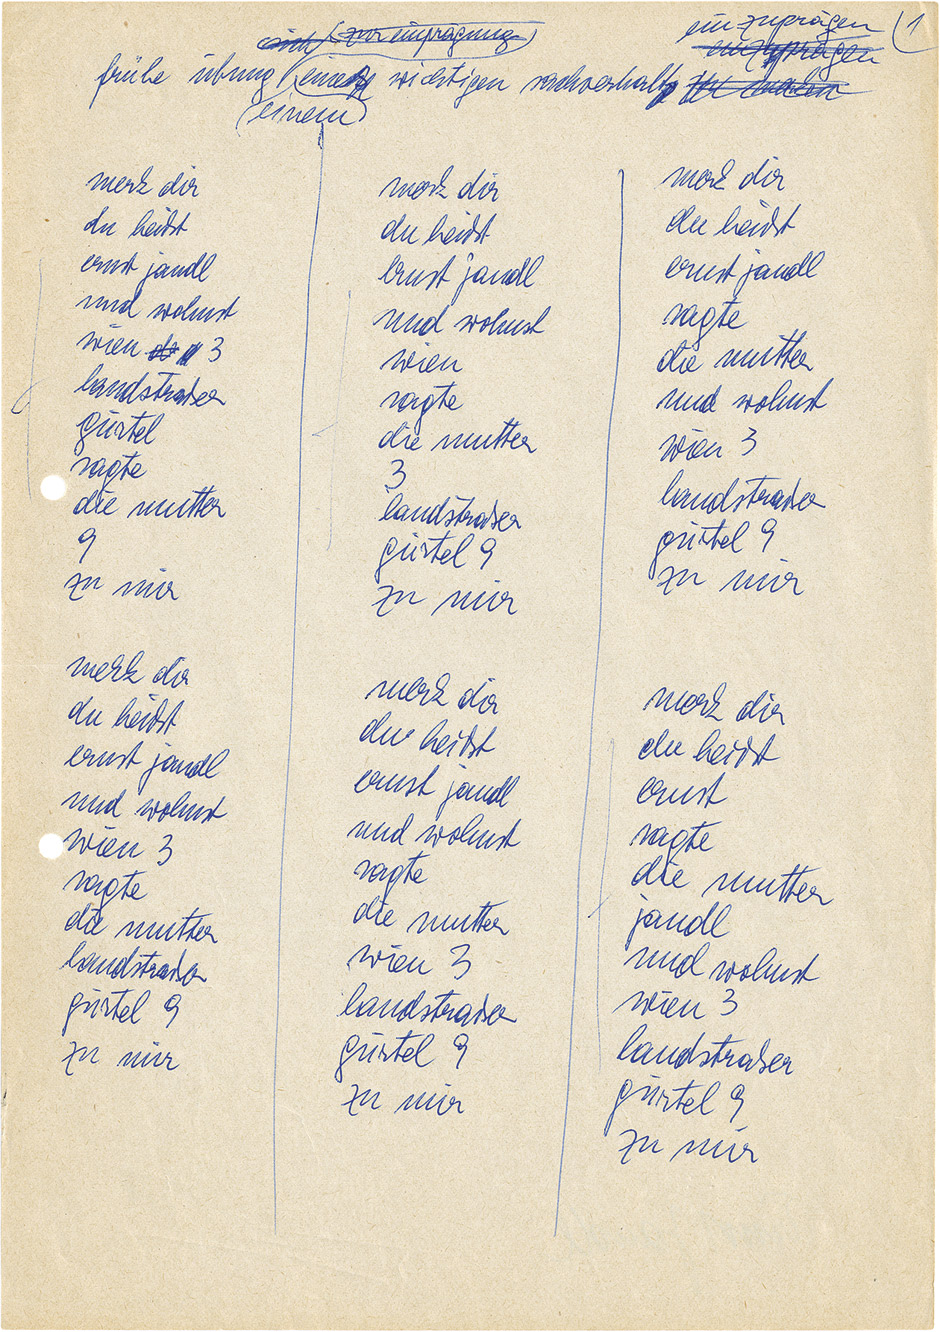 zur einprägung einzuprägen 1
einzuprägen
frühe übung eines wichtigen sachverhalt
(einem)
merk dir
du heißt
ernst jandl
und wohnst
wien 3
landstraßer
gürtel
sagte
die mutter
9
zu mir
merk dir
du heißt
ernst jandl
und wohnst
wien 3
sagte
die mutter
landstraßer
gürtel 9
zu mir
merk dir
du heißt
ernst jandl
und wohnst
wien
sagte
die mutter
3
landstraßer
gürtel 9
zu mir
merk dir
du heißt
ernst jandl
und wohnst
sagte
die mutter
wien 3
landstraßer
gürtel 9
zu mir
merk dir
du heißt
ernst jandl
sagte
die mutter
und wohnst
wien 3
landstraßer
gürtel 9
zu mir
merk dir
du heißt
ernst
sagte
die mutter
jandl
und wohnst
wien 3
landstraßer
gürtel 9
zu mir